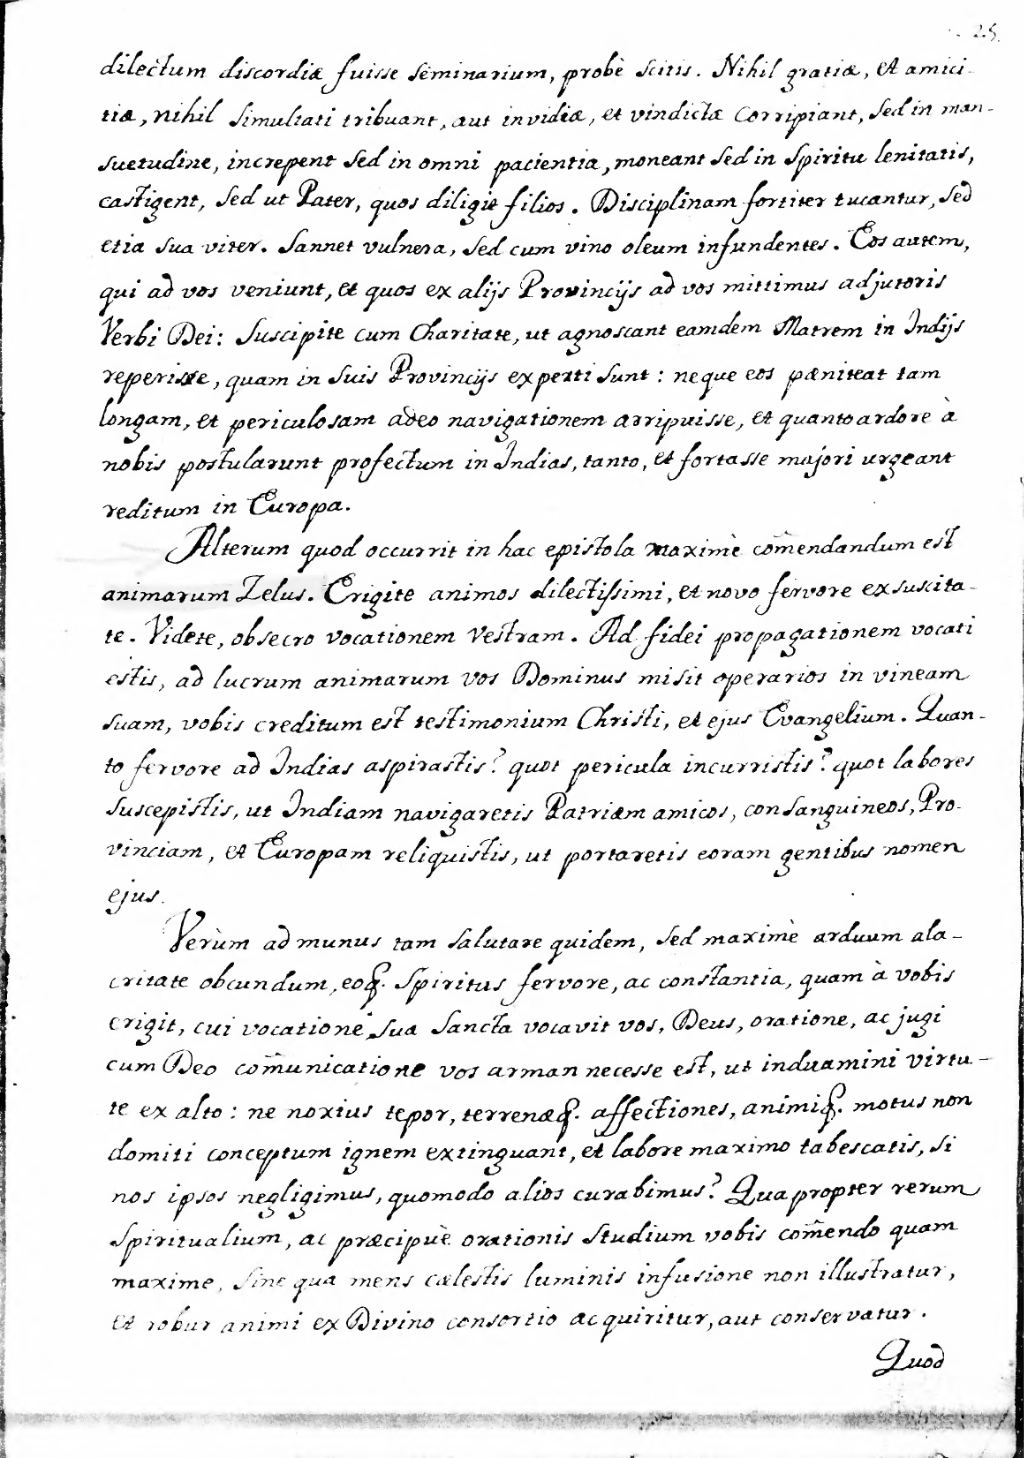 25.
dilectum discordiæ fuisse seminarium, probè scitis. Nihil gratiæ, et amici-
tiæ, nihil simultati tribuant, aut invidiæ, et vindictæ corripiant, sed in man-
suetudine, increpent sed in omni pacientia, moneant sed in spiritu lenitatis,
castigent, sed ut Pater, quos diligit filios. Disciplinam fortiter tucantur, sed
etia suaviter. Sannet vulnera, sed cum vino oleum infundentes. Eos autem,
qui ad vos veniunt, et quos ex alijs Provincijs ad vos mittimus adjutoris
Verbi Dei: suscipite cum Charitate, ut agnoscant eamdem Matrem in Indijs
reperisse, quam in suis Provincijs experti sunt: neque eos pæniteat tam
longam, et periculosam adeo navigationem arripuisse, et quanto ardore à
nobis postularunt profectum in Indias, tanto, et fortasse majori urgeant
reditum in Europa.
Alterum quod occurrit in hac epistola maximè com̄endandum est
animarum Zelus. Erigite animos dilectissimi, et novo fervore exsuscita-
te. Videte, obsecro vocationem vestram. Ad fidei propagationem vocati
estis, ad lucrum animarum vos Dominus misit operarios in vineam
suam, vobis creditum est testimonium Christi, et ejus Evangelium. Quan-
to fervore ad Indias aspirastis? quot pericula incurristis? quot labores
suscepistis, ut Indiam navigaretis Patriam amicos, consanguineos, Pro-
vinciam, et Europam reliquistis, ut portaretis coram gentibus nomen
ejus.
Verùm ad munus tam salutare quidem, sed maximè arduum ala-
critate obeundum, eoq. Spiritus fervore, ac constantia, quam à vobis
erigit, cui vocatione sua sancta vocavit vos, Deus, oratione, ac jugi
cum Deo com̄unicatione vos arman necesse est, ut induamini virtu-
te ex alto: ne noxius tepor, terrenæq. affectiones, animiq. motus non
domiti conceptum ignem extinguant, et labore maximo tabescatis, si
nos ipsos negligimus, quomodo alios curabimus? Quapropter rerum
spiritualium, ac præcipuè orationis studium vobis com̄endo quam
maxime, sine qua mens cælestis luminis infusione non illustratur,
et robur animi ex Divino consortio acquiritur, aut conservatur.
Quod